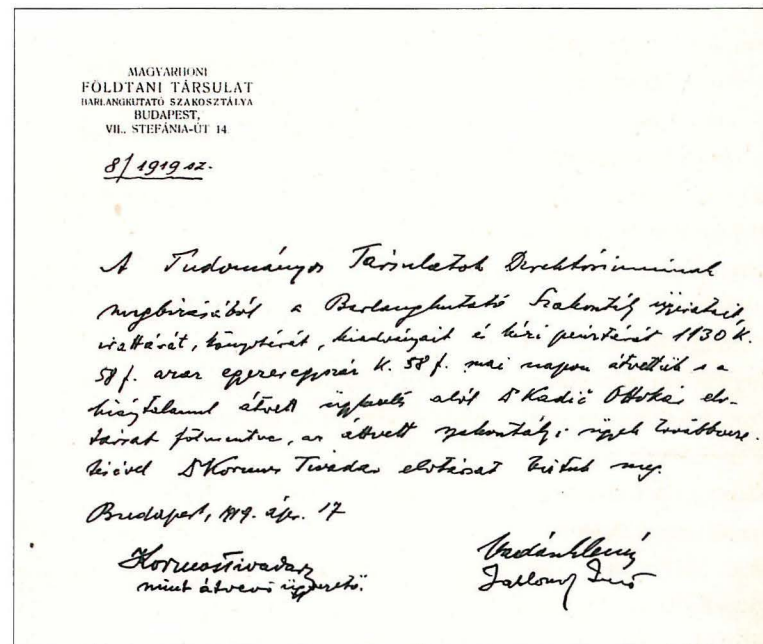 MAGYARHONI
FÖLDTANI TÁRSULAT
BARLANGKUTATÓ SZAKOSZTÁLYA
BUDAPEST,
VII., STEFÁNIA-ÚT 14
8/1919 sz.
A Tudományos Társulatok Direktóriumának
megbizásából a Barlangkutató Szakosztály ügyiratait,
irattárát, könyvtárát, kiadványait és kézi pénztárát 1130 K.
58 f. azaz K. 58 f. mai napon átvettük s a
hiánytalanul átvett ügykezelés alól Dr Kadić Ottokár elv-
társat fölmentve, az átvett szakosztályi ügyek továbbveze-
tésével Dr Kormos Tivadar elvtársat biztuk meg.
Budapest, 1919. ápr. 17
Kormos Tivadar
mint átvevő ügyvezető.
Vadász Elemér
Jablonszky Jenő